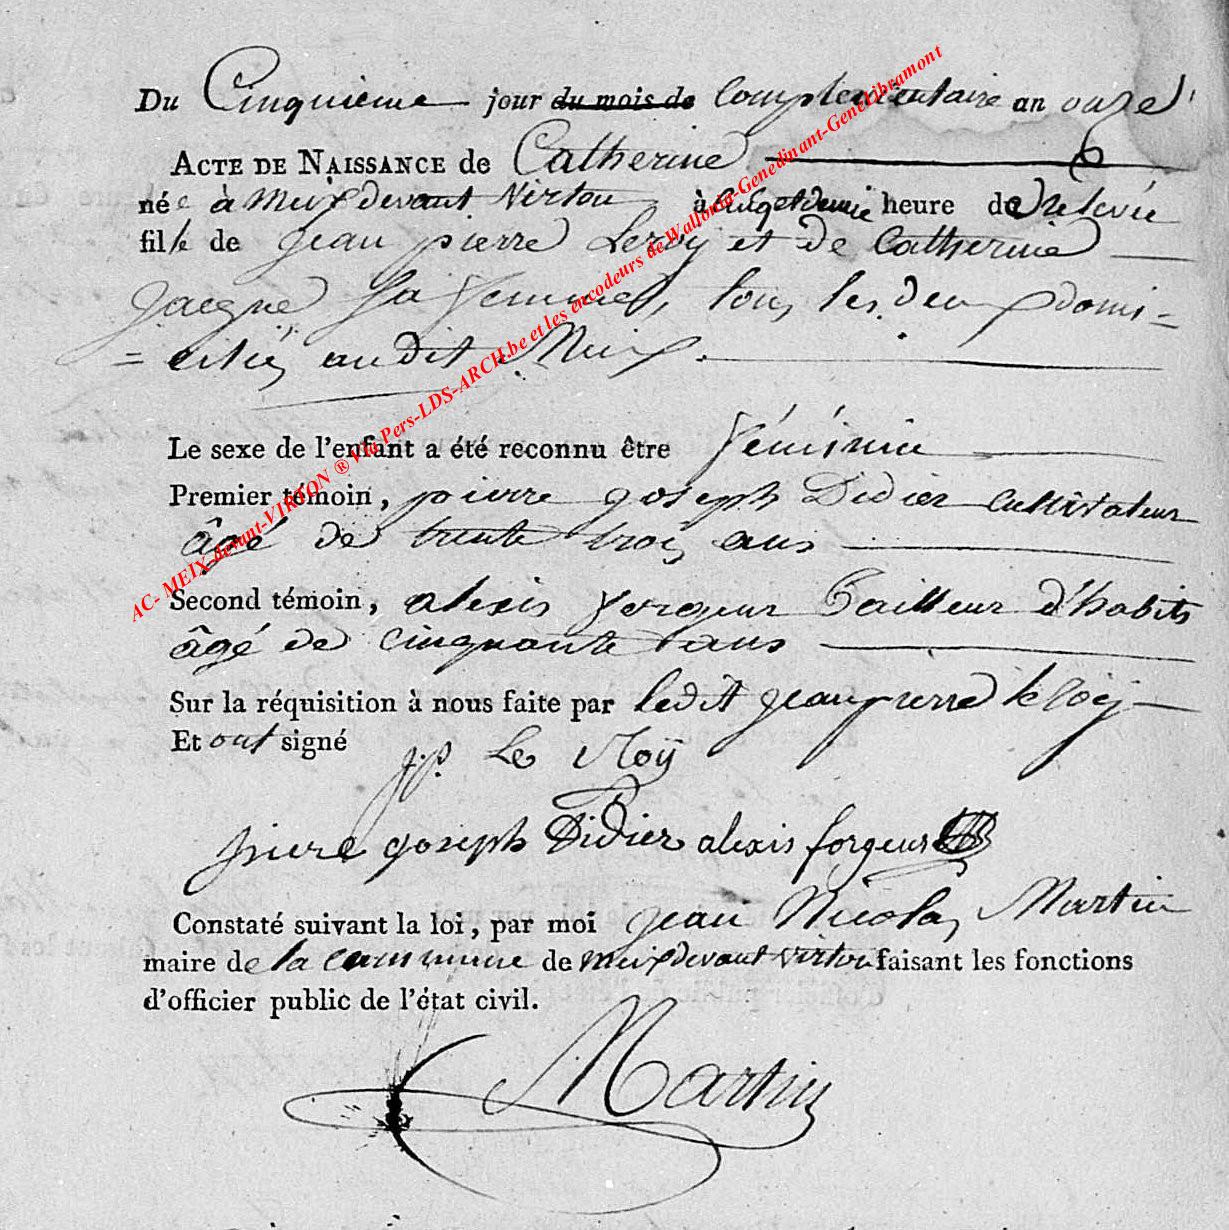 Du Cinquieme jour du mois de Complementaire an onze
ACTE DE NAISSANCE de Catherine
née à Meix devant Virton à cinq et demie heure de relevée
fille de jean pierre Leroÿ et de Catherine
jacque Sa femme, tous les deux domi=
=ciliés audit Meix.
Le sexe de l'enfant a été reconnu être féminin
Premier témoin, pierre joseph Didier cultivateur
âgé de trente trois ans
Second témoin, alexis forgeur tailleur d'habits
âgé de cinquante ans
Sur la réquisition à nous faite par ledit jean pierre leroÿ
Et ont signé
j.p. Le Roÿ
pierre joseph Didier alexis forgeur
Constaté suivant la loi, par moi jean Nicolas Martin
maire de la commune de meix devant virton faisant les fonctions
d'officier public de l'état civil.
Martin
AC- MEIX-devant-VIRTON ® Via Pers-LDS-ARCH.be et les encodeurs de Wallonia-Genedinant-Genelibramont